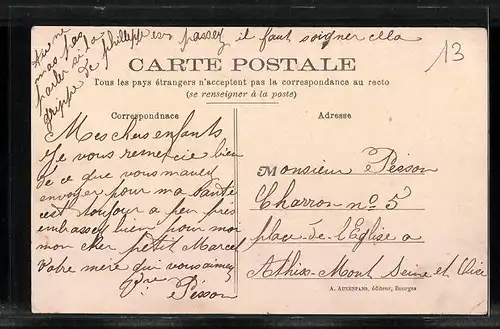 tu ne
mas pas
parler si la
grippe de philippe es passey il faut soigner cella
13
CARTE POSTALE
Tous les pays étrangers n'acceptent pas la correspondance au recto
(se renseigner à la poste)
Correspondnace
Mes chers enfants
Je vous remercie bien
de ce que vous mavey
envoyer pour ma santé
cest toujour a peu près
embassey bien pour moi
mon cher petit Marcel
Votre mère qui vous aimey
Pésson
Adresse
Monsieur Pésson
Charron nº 5
place de l'Eglise a
Athis-Mont Seine et Oise
A. AUXENFANS, éditeur, Bourges